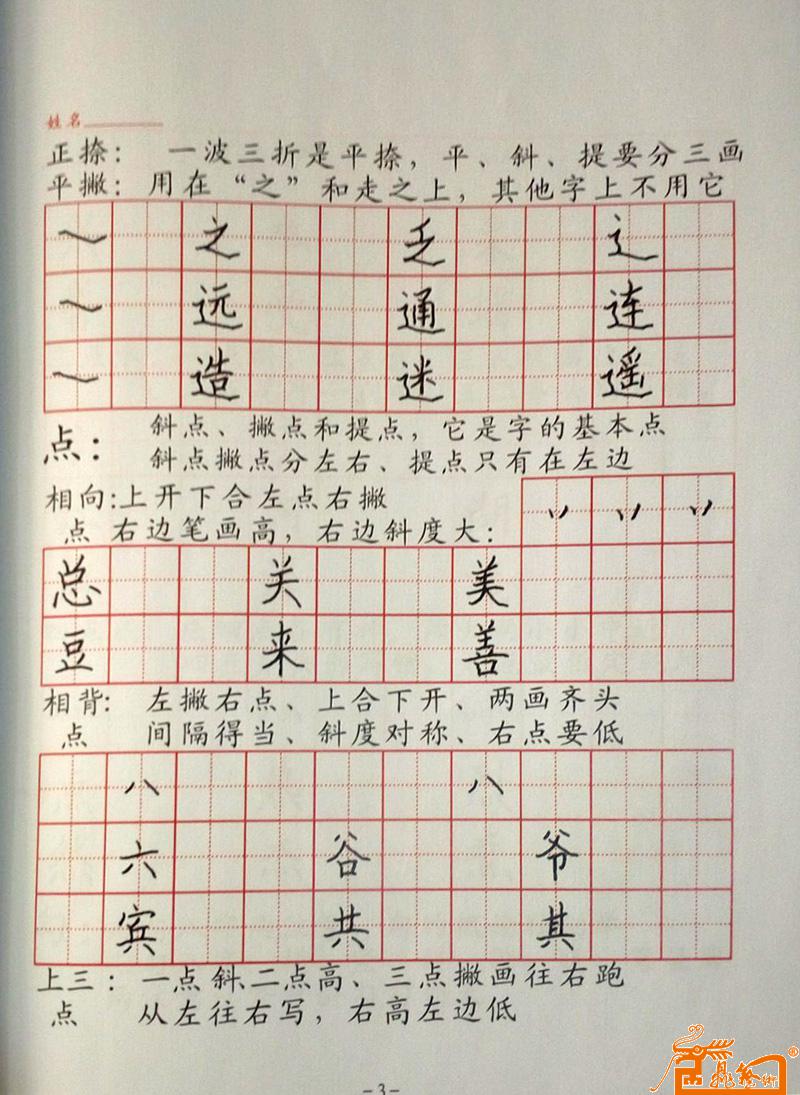 姓名
正捺： 一波三折是平捺，平、斜、提要分三画
平撇：用在“之”和走之上，其他字上不用它
之 乏 辶
远 通 连
造 迷 遥
点： 斜点、撇点和提点，它是字的基本点
斜点撇点分左右、提点只有在左边
相向:上开下合左点右撇
点 右边笔画高，右边斜度大：
总 关 美
豆 来 善
相背: 左撇右点、上合下开、两画齐头
点 间隔得当、斜度对称、右点要低
八 八
六 谷 爷
宾 共 其
上三：一点斜、二点高、三点撇画往右跑
点 从左往右写，右高左边低
-3-